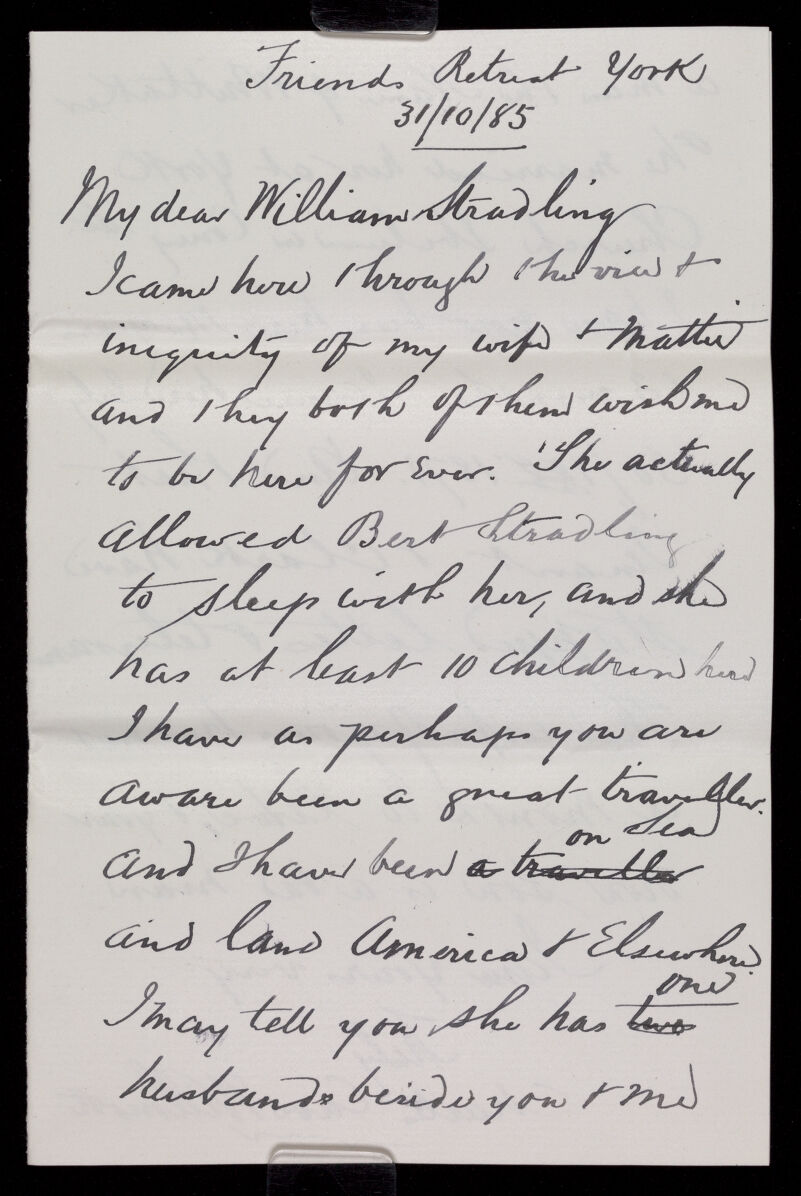 Friends Retreat York
31/10/85
My dear William Stradling
I came here through the vice &
inequity of my wife & Mattie
and they both of them wish me
to be here for Ever. She actually
allowed Bert Stradling
to sleep with her, and she
has at least 10 children here
I have as perhaps you are
aware been a great traveller.
on Sea
and I have been a traveller
and land America & Elsewhere.
one
I may tell you she has two
husbands beside you & me